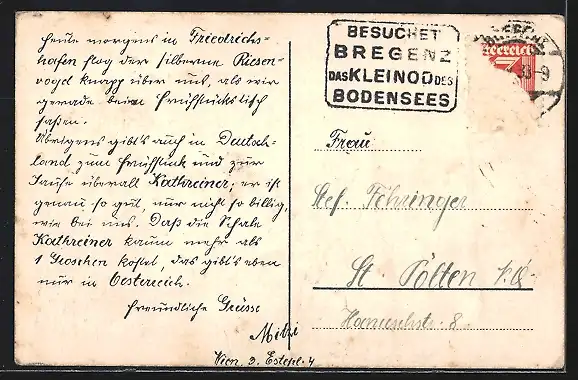 heute morgens in Friedrichs-
hafen flog der silberne Riesen-
vogel knapp über uns, als wir
gerade beim Frühstückstisch
saßen.
Übrigens gibt's auch in Deutsch-
land zum Frühstück und zur
Jause überall Kathreiner; er ist
genau so gut, nur nicht so billig,
wie bei uns. Daß die Schale
Kathreiner kaum mehr als
1 Groschen kostet, das gibt's eben
nur in Oesterreich.
Freundliche Grüsse
Mitzi
Wien, 3. Estepl. 4
BESUCHET
BREGENZ
DAS KLEINOD DES
BODENSEES
BREGENZ
Frau
Stef. Fehringer
St Pölten N.Ö.
Hanuschstr. 8